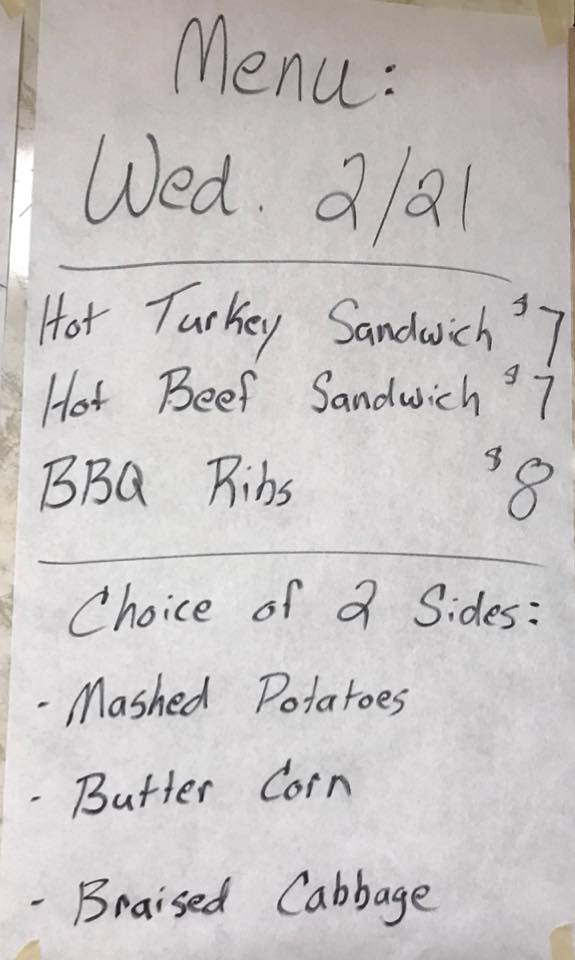 Menu:
Wed. 2/21
Hot Turkey Sandwich $7
Hot Beef Sandwich $7
BBQ Ribs $8
Choice of 2 Sides:
- Mashed Potatoes
- Butter Corn
- Braised Cabbage